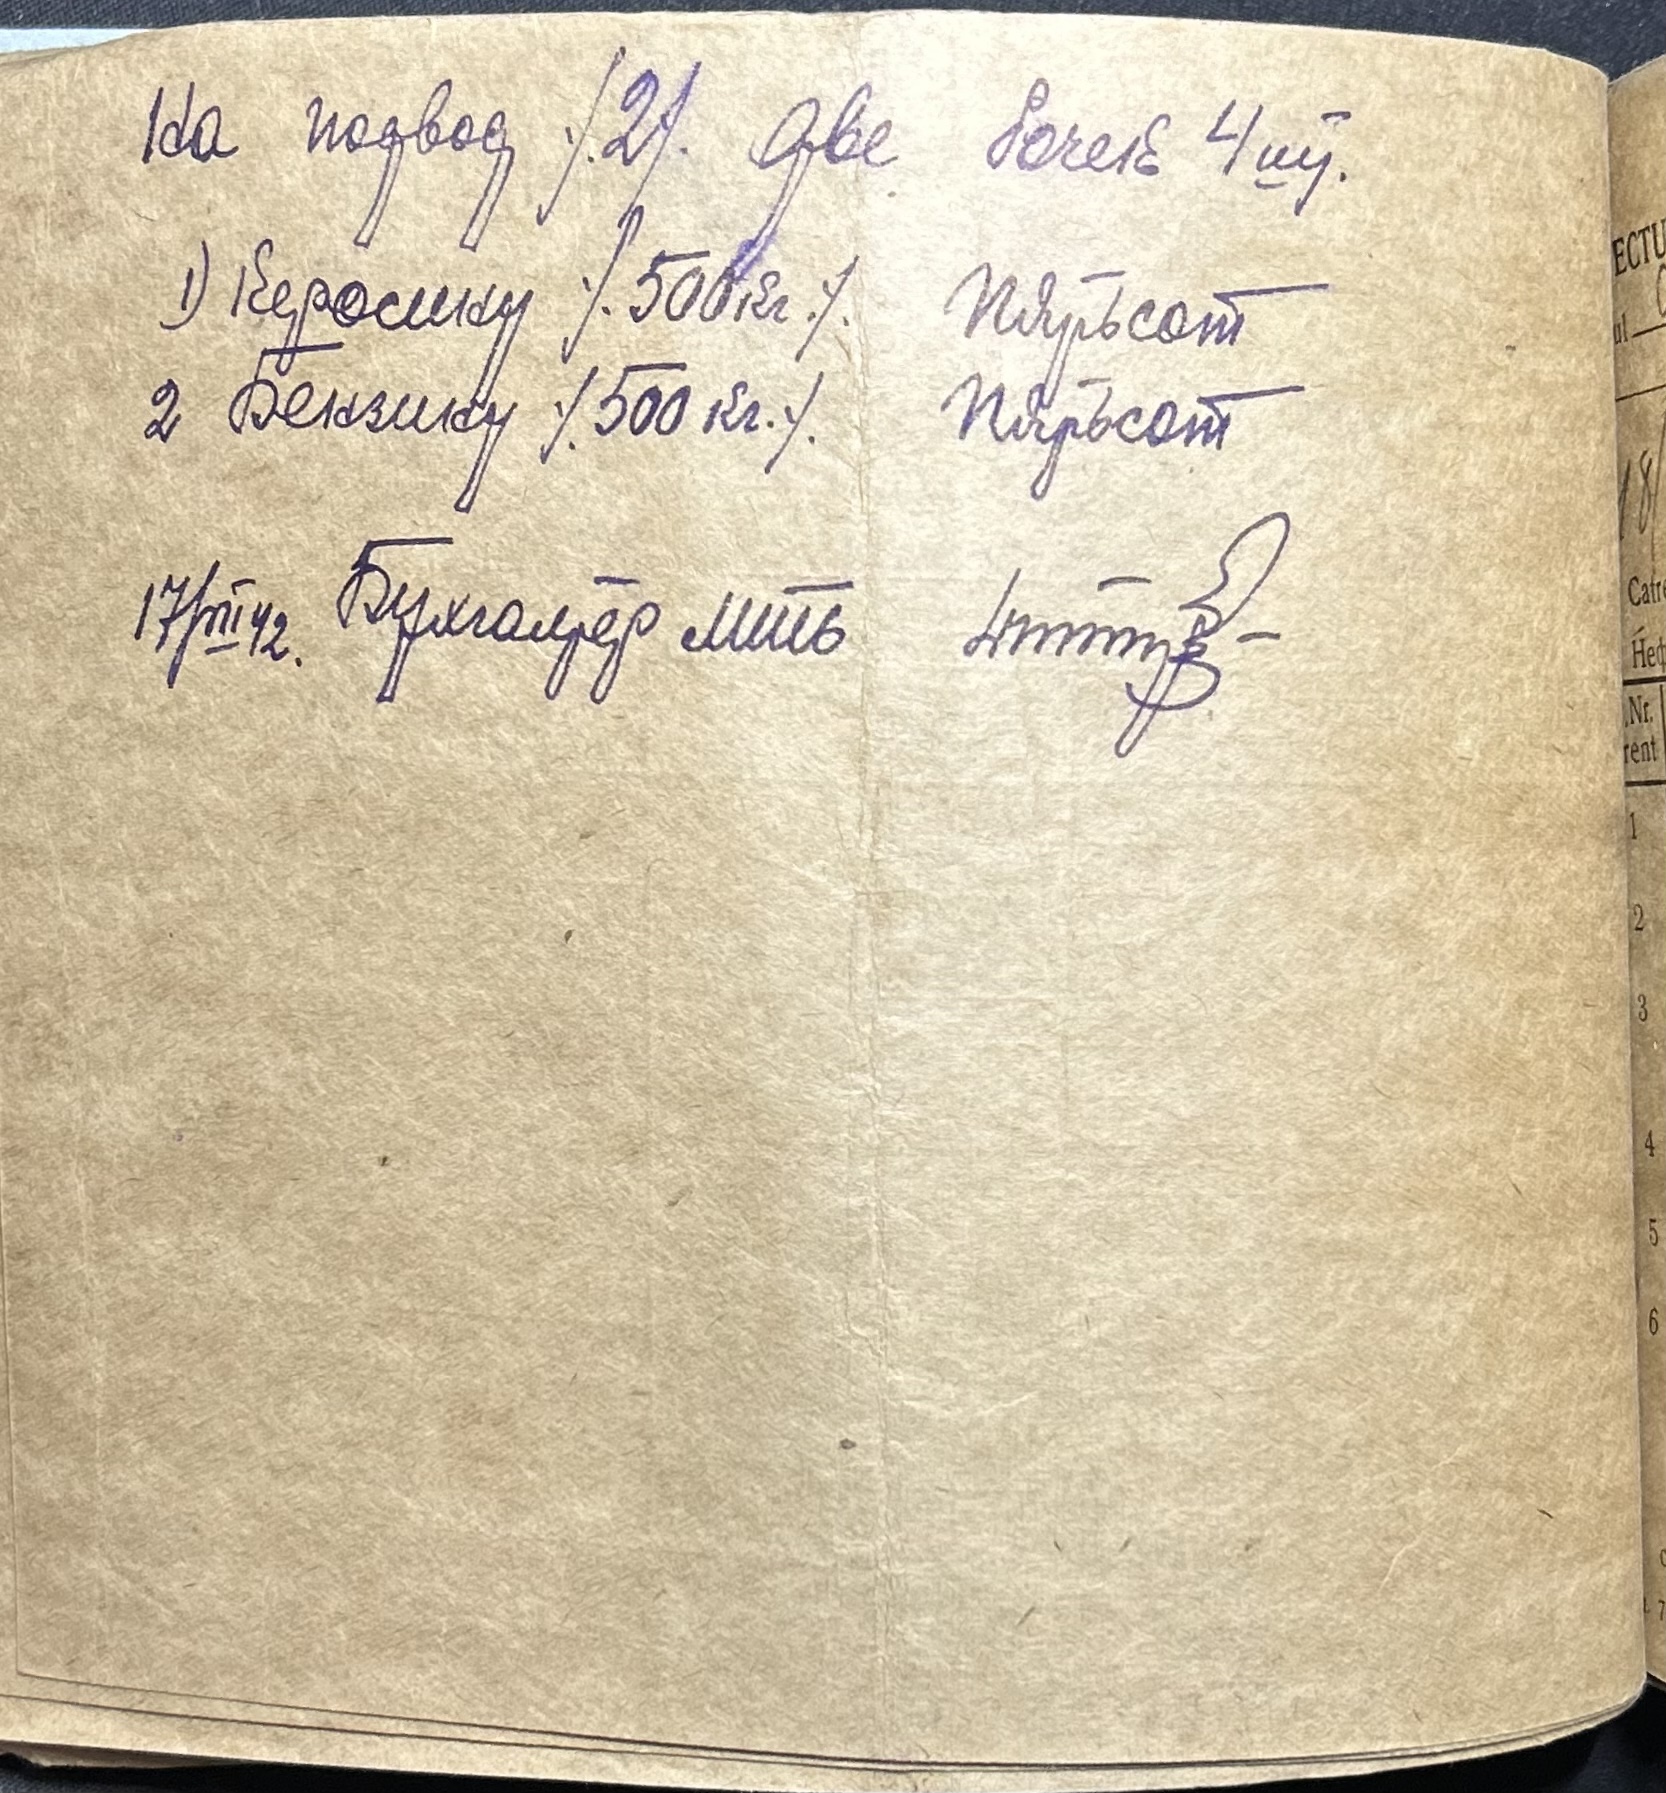 На подвод ·/. 2 /. две бочек 4 шт.
1) Керосину ·/. 500 кг. ·/. Пятьсот
2 Бензину ·/. 500 кг. ·/. Пятьсот
17/VIII 42. Бухгалтер МТС
ECTU
ul
18/
Catre
Неф
Nr.
rent
1
2
3
4
5
6